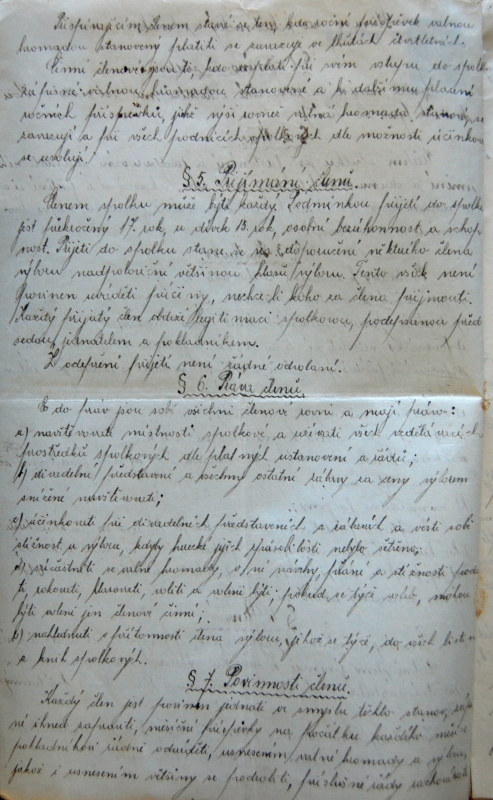 Přispívajícím členem stává se ten, kdo roční příspěvek valnou
hromadou stanovený platiti se zavazuje ve lhůtách čtvrtletních.
Činní členové jsou ti, kdo zaplatí při svém vstupu do spolku
zápisné valnou hromadou stanovené a k dalšímu placení
ročních příspěvků, jichž výši rovněž valná hromada stanoví, se
zavazují a při všech podnicích spolkových dle možnosti účinkovati
se uvolují.
§ 5. Přijímání členů.
Členem spolku může býti každý. Podmínkou přijetí do spolku
jest překročený 17. rok, u dívek 15. rok, osobní bezúhonnost a schop-
nost. Přijetí do spolku stane se na doporučení některého člena
výboru nadpoloviční většinou hlasů výboru. Tento však není
povinen uváděti příčiny, nechce-li koho za člena přijmouti.
Každý přijatý člen obdrží legitimaci spolkovou, podepsanou před-
sedou, jednatelem a pokladníkem.
Z odepření přijetí není žádné odvolání.
§ 6. Práva členů.
Co do práv jsou sobě všichni členové rovni a mají právo:
a) navštěvovati místnosti spolkové a užívati všech vzdělávacích
prostředků spolkových dle platných ustanovení a řádů;
b) divadelní představení a všechny ostatní zábavy za ceny výborem
snížené navštěvovati;
c) účinkovati při divadelních představeních a zábavách a vésti sobě
stížnost u výboru, kdyby herecké jejich způsobilosti nebylo šetřeno;
d) súčastniti se valné hromady, činiti návrhy, přání a stížnosti
rokovati, hlasovati, voliti a voleni býti; pokud se týče voleb, mohou
býti voleni jen členové činní;
e) nahlédnouti v přítomnosti člena výboru, jehož se týče, do všech listin
a knih spolkových.
§ 7. Povinnosti členů.
Každý člen jest povinen jednati ve smyslu těchto stanov, zápis-
né ihned zapraviti, měsíční příspěvky na počátku každého měsíce
pokladníkovi řádně odváděti, usnesením valné hromady a výboru,
jakož i usnesením většiny se podrobiti, příslušné řády zachovávati